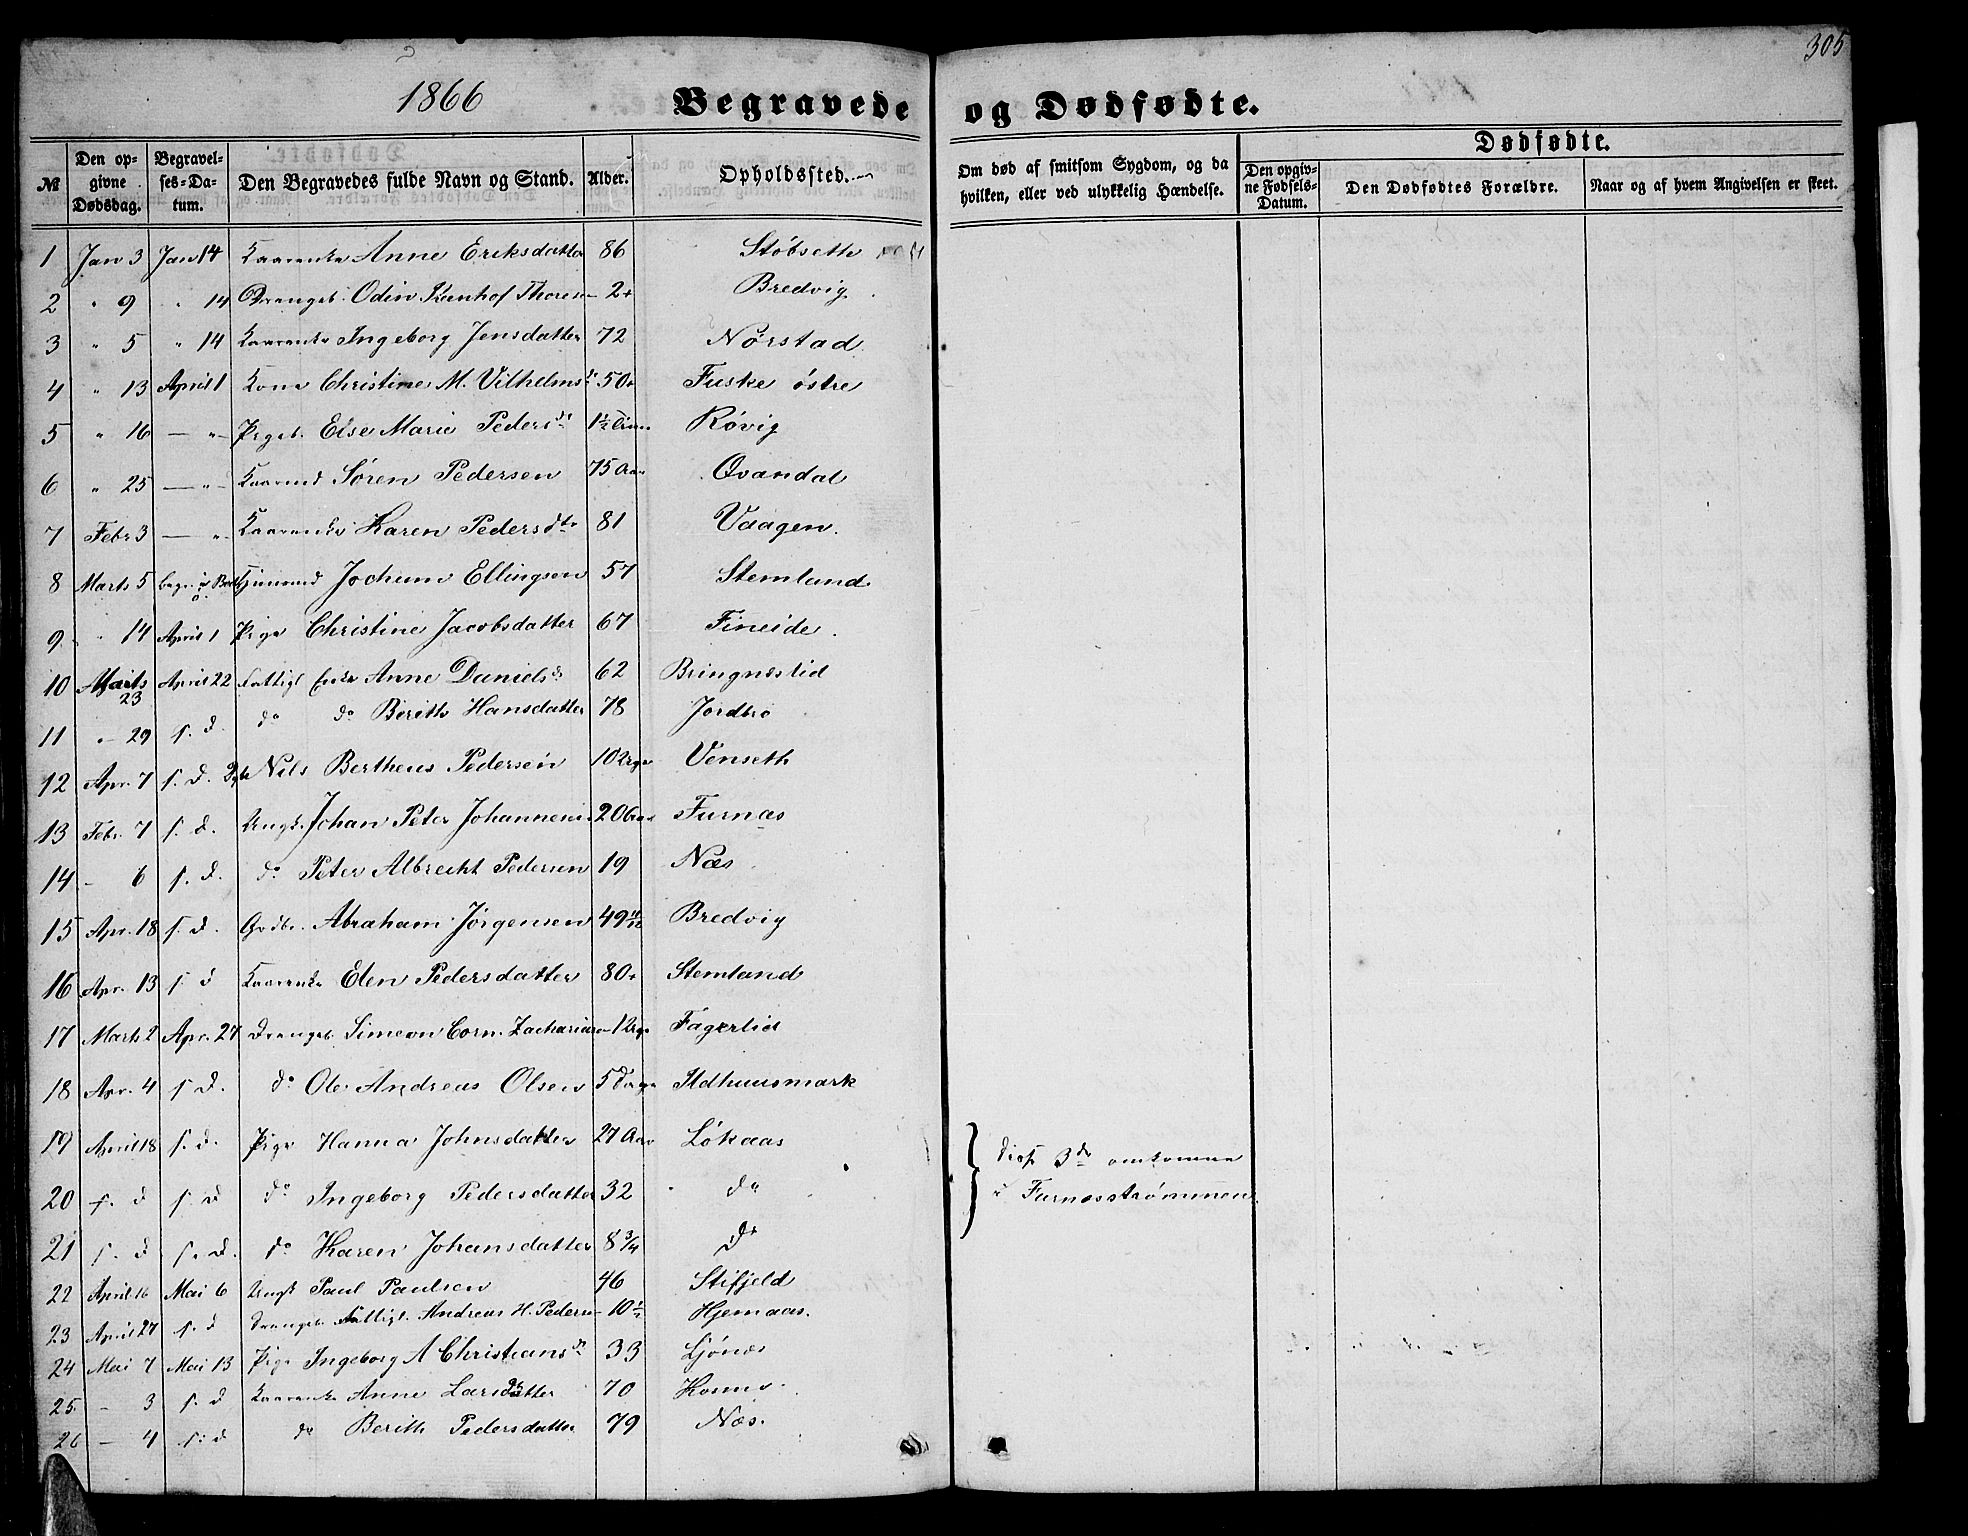 305
1866 Begravede og Dødfødte.
Dødfødte.
№ Den opgivne Dødsdag. Begravelses-Datum. Den Begravedes fulde Navn og Stand. Alder. Opholdssted. Om død af smitsom Sygdom, og da hvilken, eller ved ulykkelig Hændelse. Den opgivne Fødsels-Datum. Den Dødfødtes Forældre. Naar og af hvem Angivelsen er skeet.
1 Jan 3 Jan 14 Kaarenke Anne Eriksdatter 86 Støbseth
2 " 9 " 14 Drengeb. Odin Thoresen 2 Bredvig
3 " 5 " 14 Kaarenke Ingeborg Jensdatter 72 Nørstad
4 " 13 April 1 Kone Christine M. Vilhelmsd 50 Fuske østre
5 " 16 — " — Pigeb. Else Marie Pedersdr 1½ Røvig
6 " 25 — " — Kaarmd Søren Pedersen 75 Aar Qvandal
7 Febr 3 — " Kaarenke Karen Pedersdtr 81 Vaagen.
8 Marts 5 begr. i Bodø Jochum Ellingsen 57 Stemland
9 " 14 April 1 Pige Christine Jacobsdatter 67 Fineide.
10 Marts 23 April 22 Fattigl Enke Anne Danielsd 62 Bringneslid
11 " 29 s. d. do do Berith Hansdatter 78 Jordbro
12 Apr. 7 s. d. Nils Bertheus Pedersen 10 Uger Venseth
13 Febr. 7 s. d. Ungk. Johan Peter Johannesen 20 Aar Furnæs
14 - 6 s. d. do Peter Albrecht Pedersen 19 Næs
15 Apr. 18 s. d. Gdbr. Abraham Jørgensen 49 11/12 Bredvig
16 Apr. 13 s. d Kaarenke Elen Pedersdatter 80 Stemland
17 Marts 2 Apr. 27 Drengeb Simeon Corn. Zachariasen Fagerlid
18 Apr. 4 s. d. do Ole Andreas Olsen 5 Dage Ildhuusmark
19 April 18 s. d. Pige Hanna Johnsdatter 27 Aar Løkaas
} disse 3de omkomne
20 s. d s. d do Ingeborg Pedersdatter 32 do
i Furnæsstrømmen.
21 s. d s. d. do Karen Johansdatter 8 3/4 do
22 April 16 Mai 6 Ungk Paul Paulsen 46 Stifjeld
23 April 27 s. d Drengeb. Fattigl. Andreas H. Pedersen 10½ Hjemaas.
24 Mai 7 Mai 13 Pige Ingeborg A Christiansdr 33 Ljønes
25 - 3 s. d Kaarenke Anne Larsdatter 70
26 - 4 s. d do Berith Pedersdatter 79 Næs.